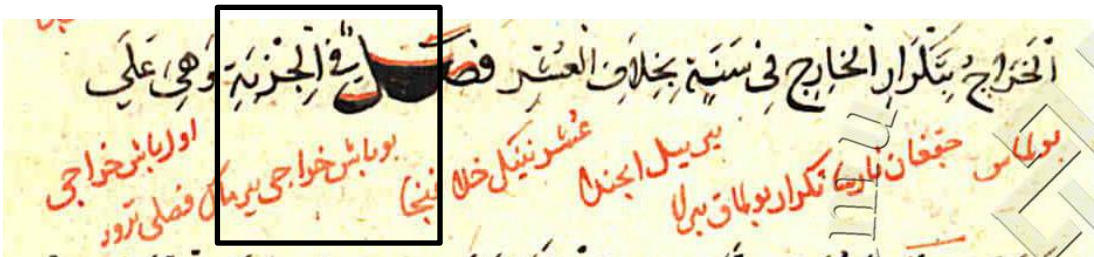 الْخَرَاجُ بِتَكْرَارِ الْخَارِجِ فِي سَنَةٍ بِخِلَافِ الْعُشْرِ فصل فِي الْجِزْيَةِ وَهِيَ عَلَى
بولماس جققان نارسا تكرار بولماق بيرلا بير ييل ايچندا عشرنينك خلافنچا بو باش خراجى بيرماك فصلى تورور اول باش خراجى